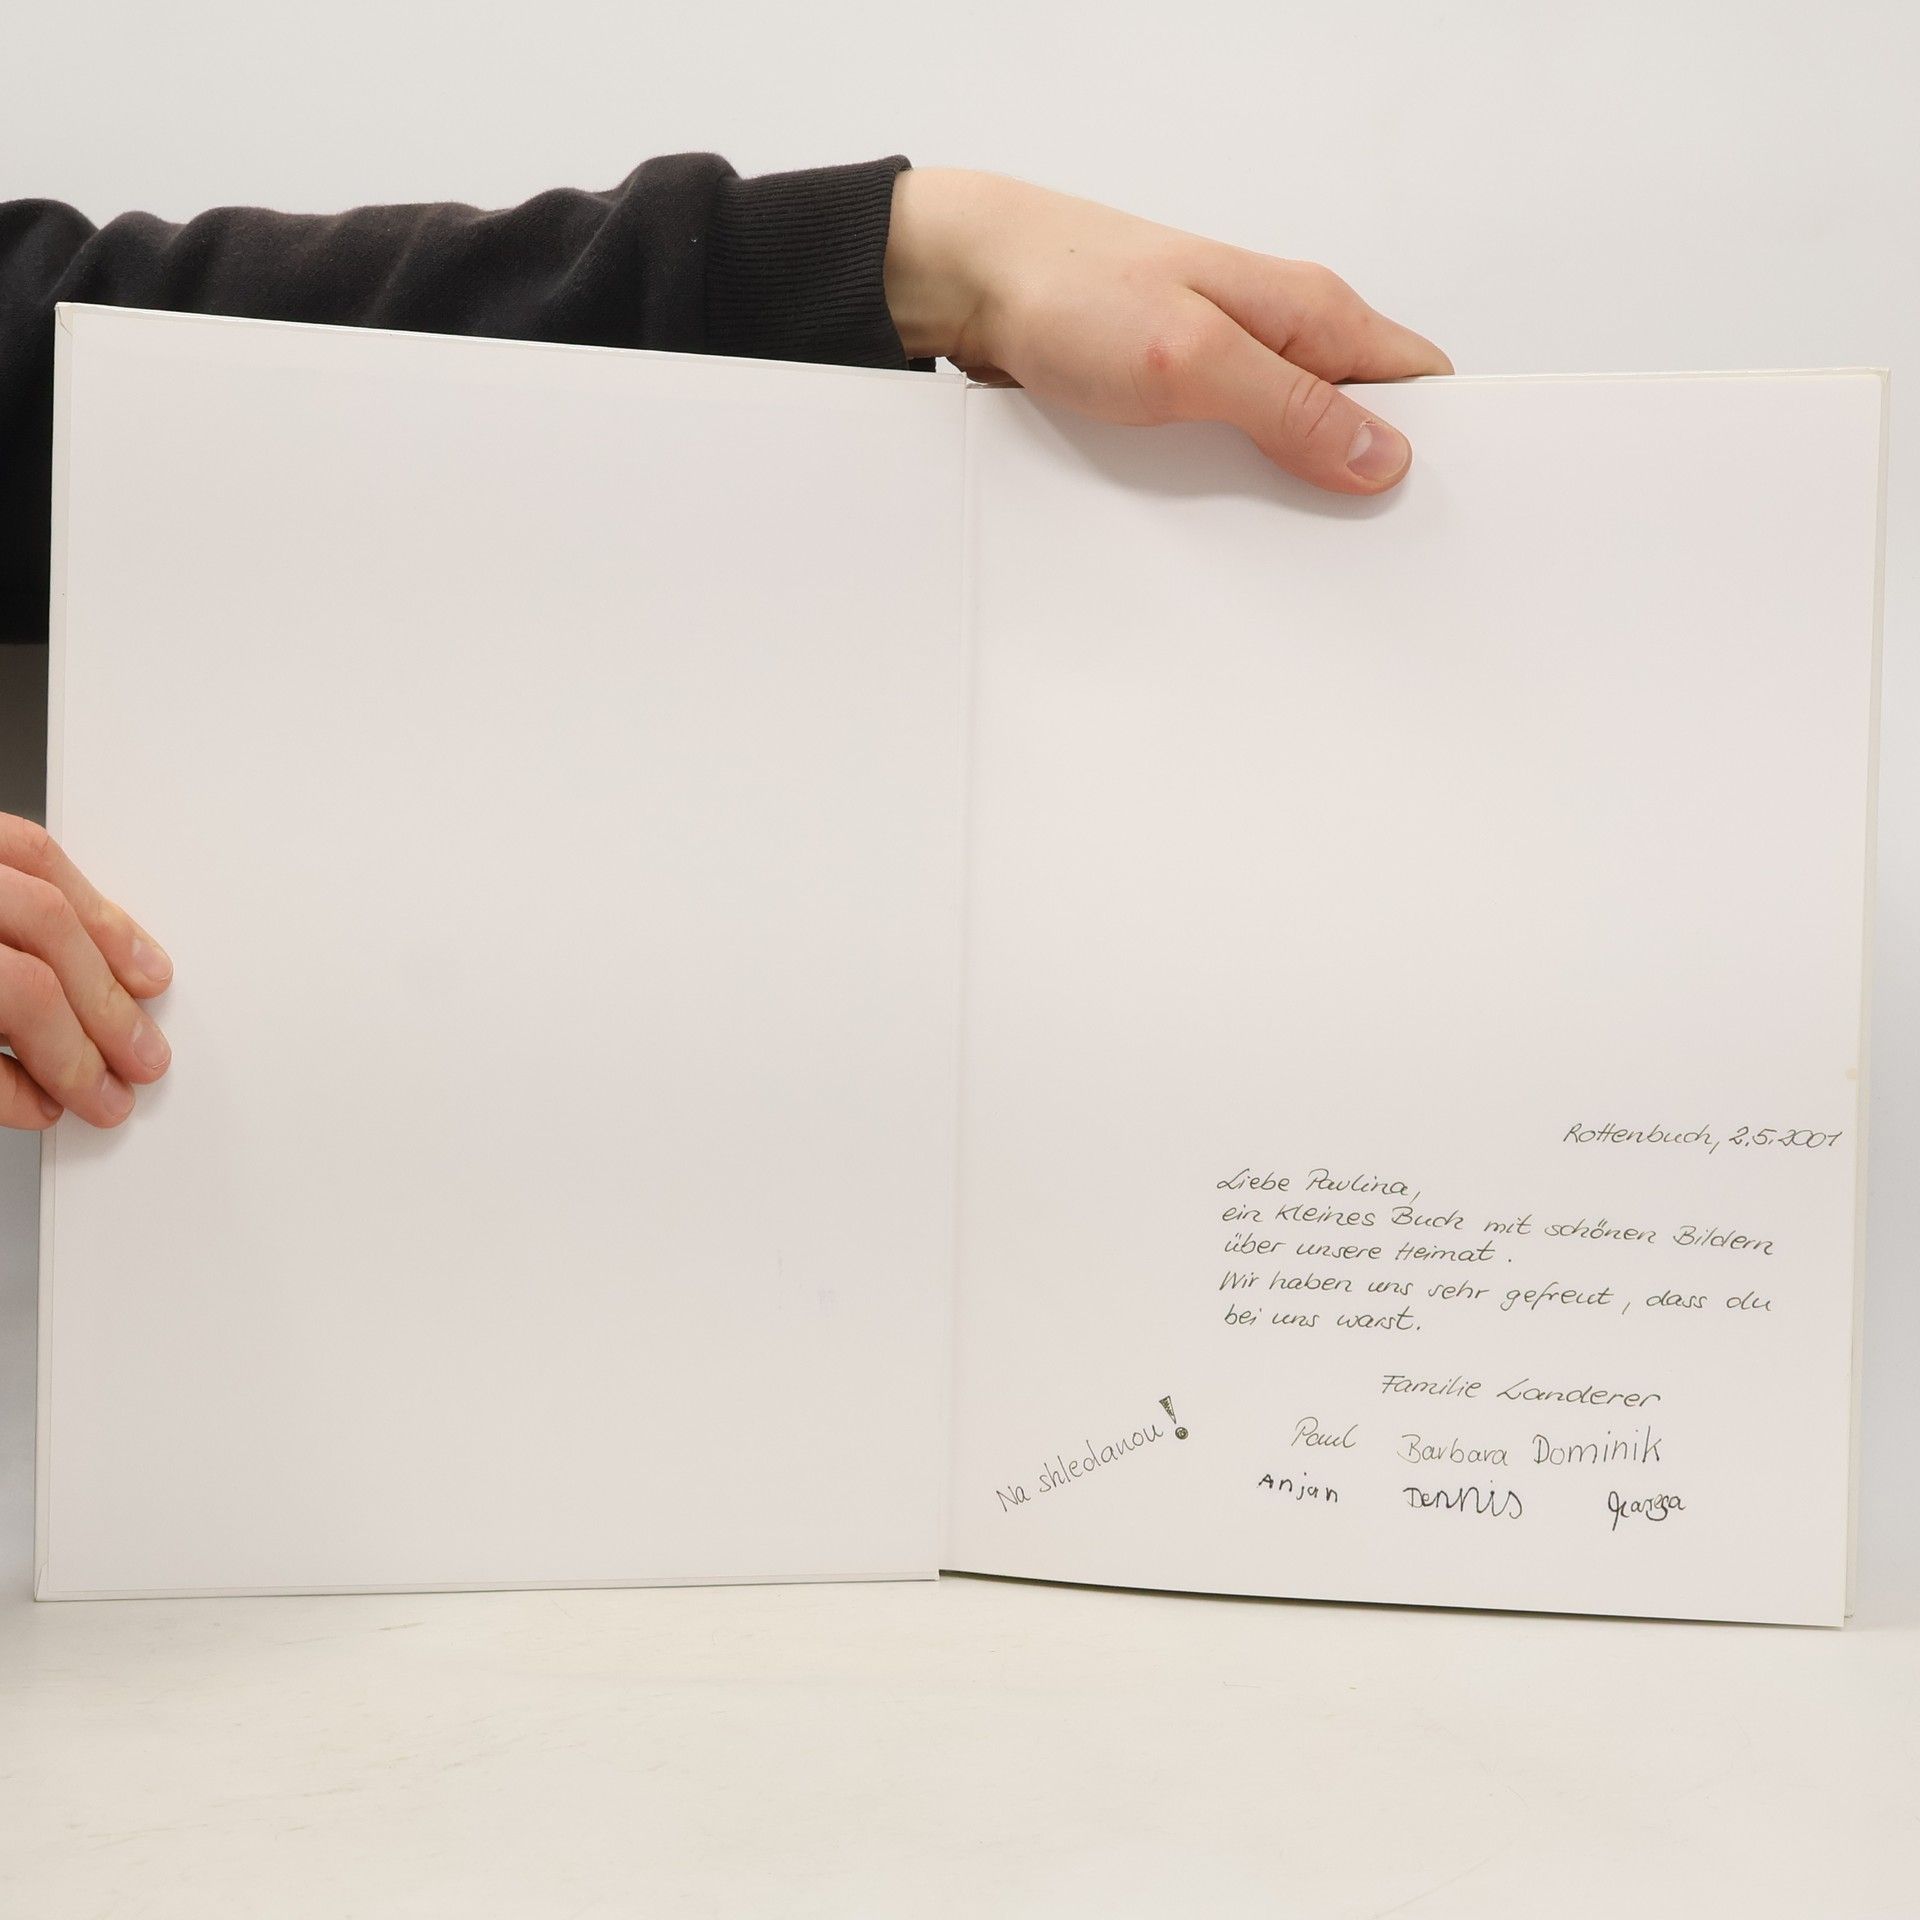 Rottenbuch, 2.5.2001
Liebe Paulina,
ein kleines Buch mit schönen Bildern
über unsere Heimat.
Wir haben uns sehr gefreut, dass du
bei uns warst.
Familie Landerer
Paul Barbara Dominik
Anjan Dennis
Na shledanou!